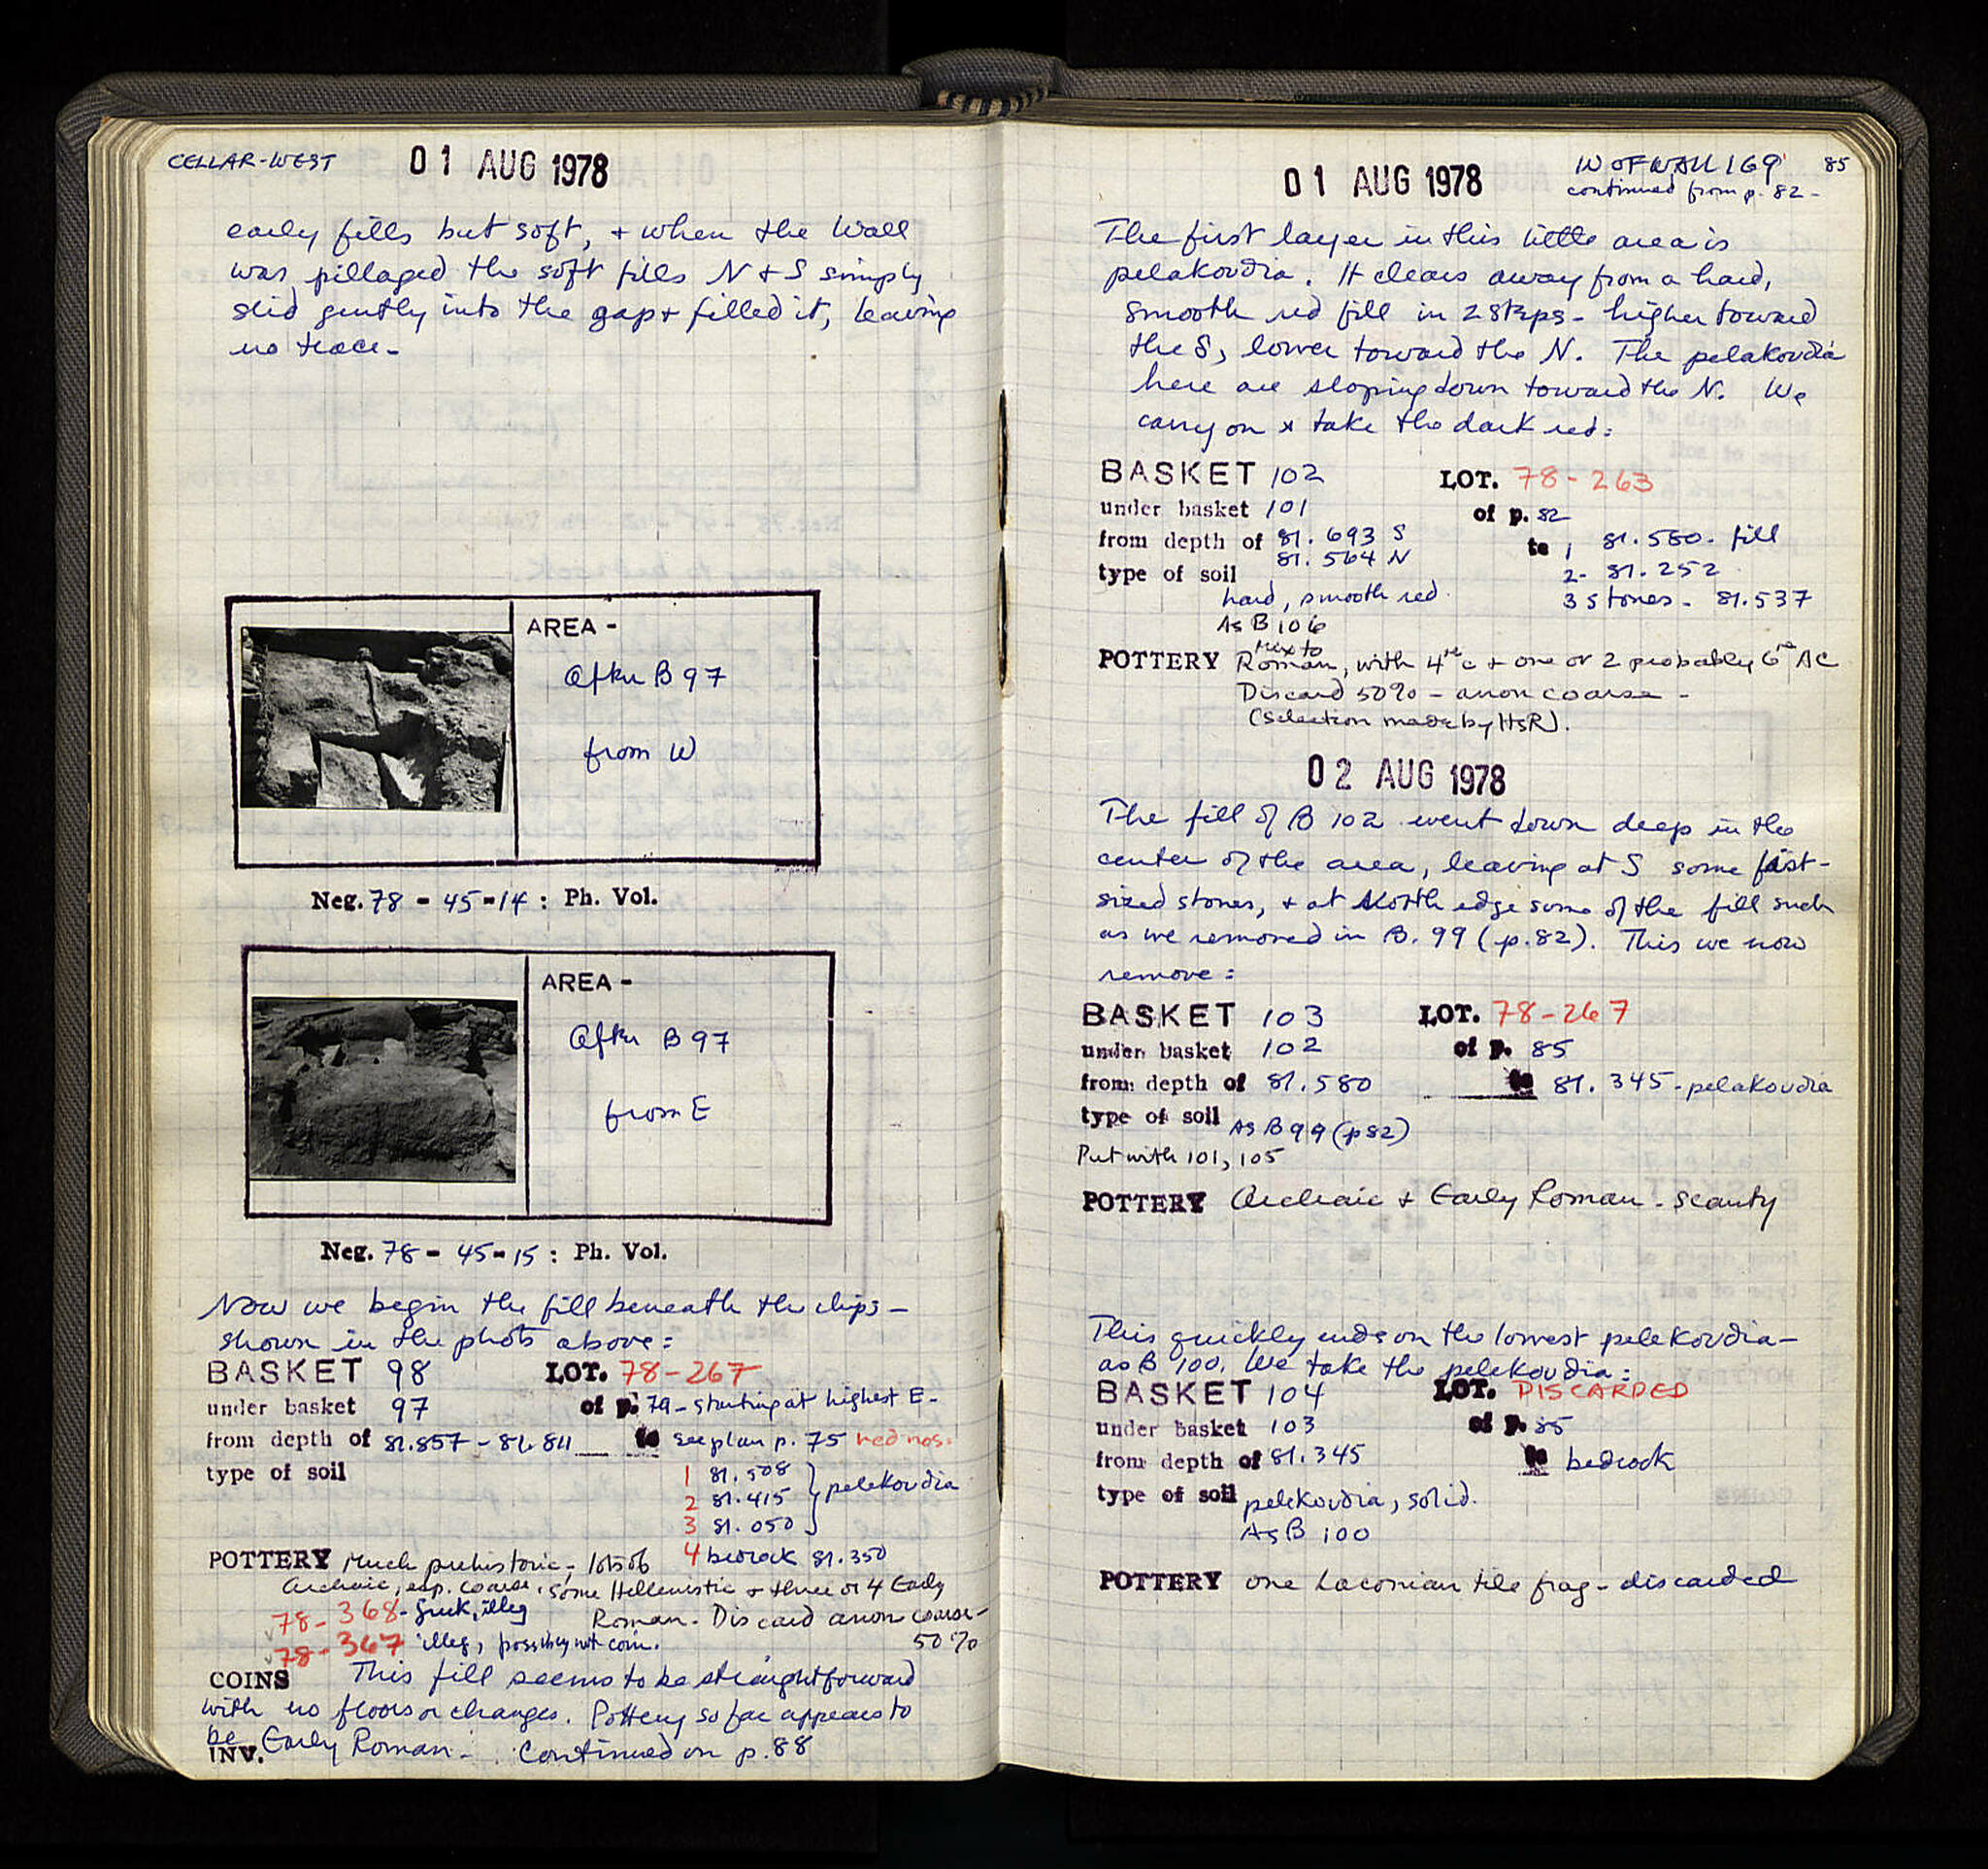 CELLAR-WEST 01 AUG 1978
early fills but soft, + when the Wall
was pillaged the soft fills N + S simply
slid gently into the gap + filled it, leaving
no trace-
AREA -
After B 97
from W
Neg. 78 - 45 - 14 : Ph. Vol.
AREA -
After B 97
from E
Neg. 78 - 45 - 15 : Ph. Vol.
Now we begin the fill beneath the chips -
shown in the photo above:
BASKET 98 LOT. 78-267
under basket 97 of p. 79 - starting at highest E-
from depth of 81.857 - 81.811 to see plan p. 75 red nos.
type of soil 1 81.508
2 81.415 pelekoudia
3 81.050
POTTERY Much prehistoric, lots of 4 bedrock 81.350
Archaic, esp. coarse, some Hellenistic + three or 4 Early
78-368 - Greek, illeg Roman - Discard anon coarse -
78-367 illeg, possibly not coin. 50%
COINS This fill seems to be straightforward
with no floors or changes. Pottery so far appears to
be Early Roman - Continued on p. 88
INV.
01 AUG 1978 W OF WALL 169 85
continued from p. 82 -
The first layer in this little area is
pelakoudia. It clears away from a hard,
smooth red fill in 2 steps - higher toward
the S, lower toward the N. The pelakoudia
here are sloping down toward the N. We
carry on + take the dark red:
BASKET 102 LOT. 78-263
under basket 101 of p. 82
from depth of 81.693 S to 1 81.580 - fill
81.564 N
type of soil 2- 81.252
hard, smooth red 3 stones - 81.537
As B 106
Mix to
POTTERY Roman, with 4th c + one or 2 probably 6th AC
Discard 50% - anon coarse -
(selection made by HSR).
02 AUG 1978
The fill of B 102 went down deep in the
center of the area, leaving at S some fist-
sized stones, + at North edge some of the fill such
as we removed in B. 99 (p. 82). This we now
remove:
BASKET 103 LOT. 78-267
under basket 102 of p. 85
from depth of 81.580 to 81.345 - pelakoudia
type of soil As B 99 (p 82)
Put with 101, 105
POTTERY Archaic + Early Roman - scanty
This quickly ends on the lowest pelekoudia -
as B 100. We take the pelekoudia:
BASKET 104 LOT. DISCARDED
under basket 103 of p. 85
from depth of 81.345 to bedrock
type of soil pelekoudia, solid.
As B 100
POTTERY one Laconian tile frag - discarded